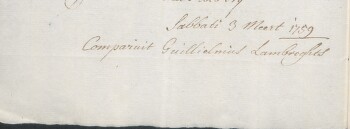 Sabbati 3 Meert 1759
Comparuit Guillielmus Lambreghts